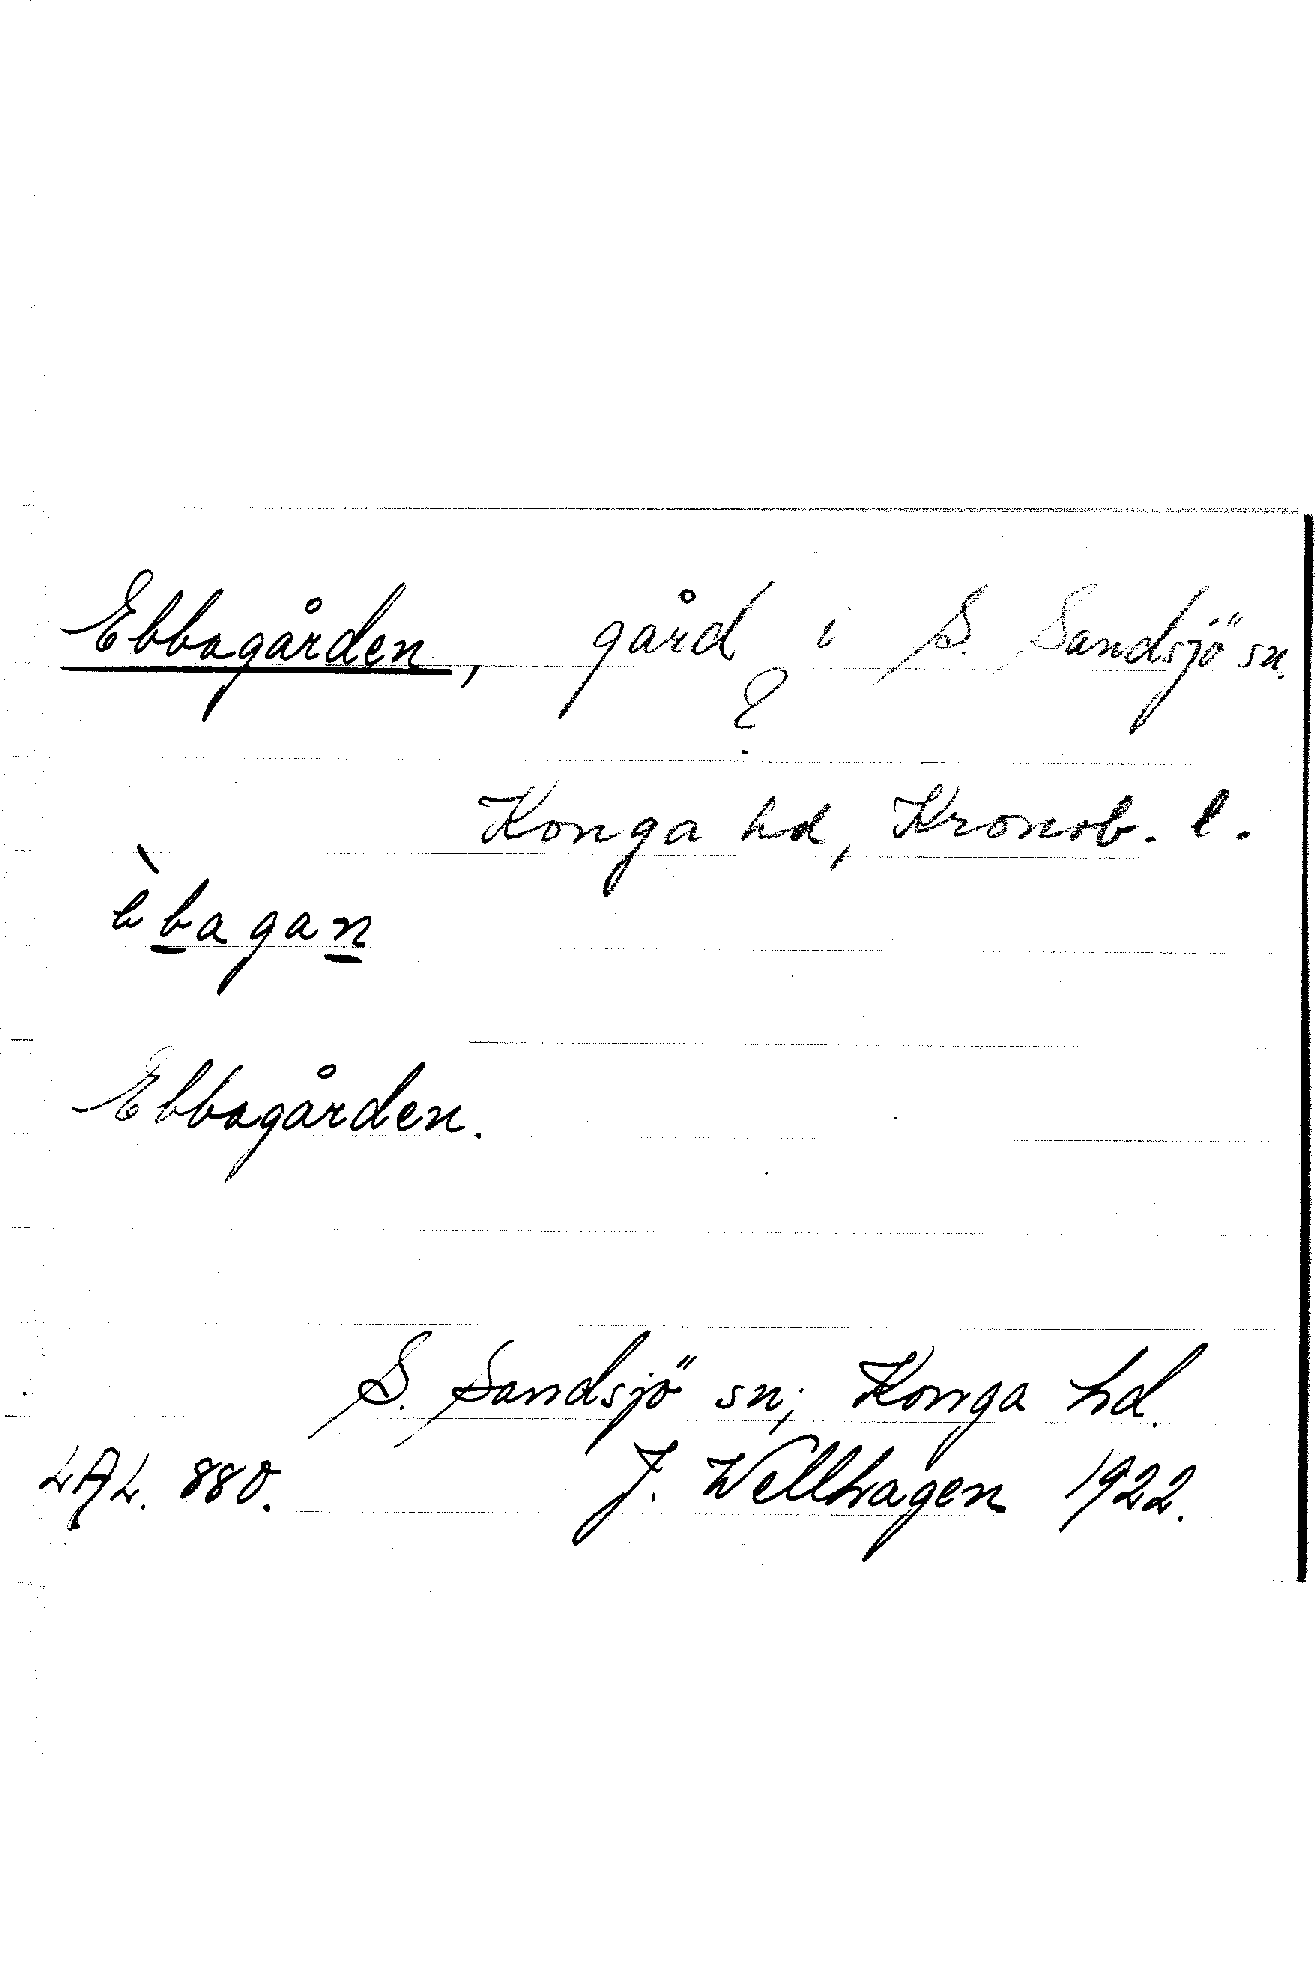 Ebbagården, gård i S. Sandsjö sn.
?
Konga hd, Kronob. l.
èbagan
Ebbagården.
S. Sandsjö sn; Konga hd.
LAL. 880. J. Wellhagen 1922.